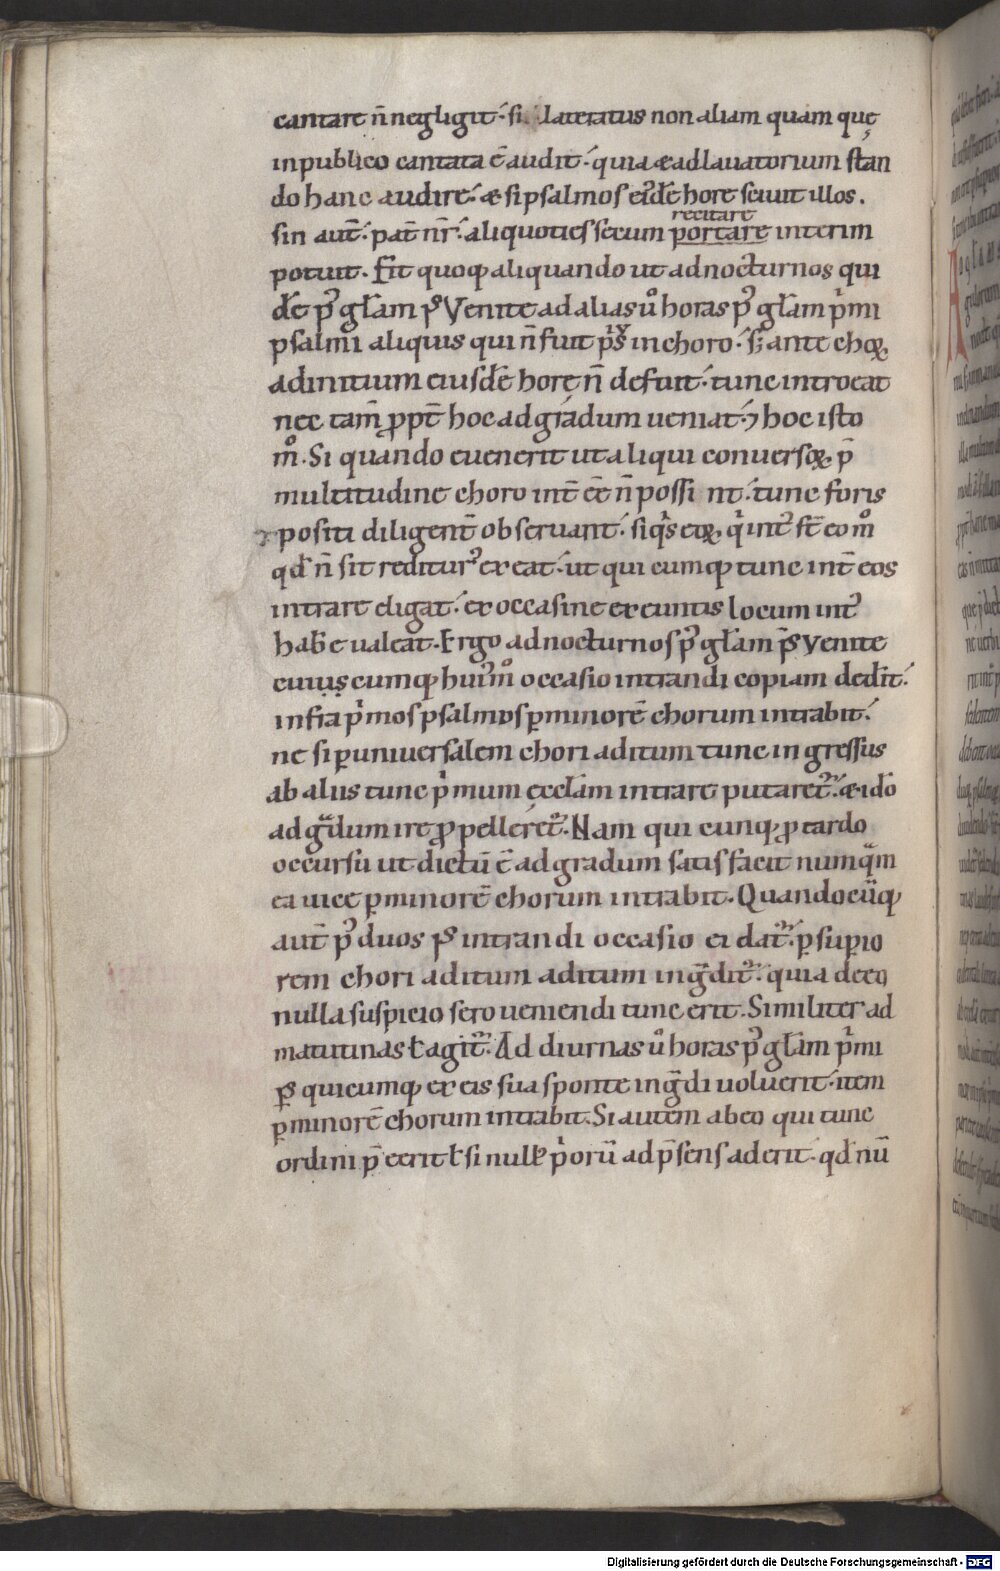 cantare n̄ negligit· si lateratus non aliam quam quę
in publico cantata ē audit· quia & ad lauatorium stan
do hanc audire· & si psalmos eiꝰdē horę sciuit illos.
sin aut̄· pat̄ nr̄· aliquoties secum portare interim
recitare
potuit. Fit quoq; aliquando ut ad nocturnos qui
dē p᷒ gl̄am ps̄ Venite ad alias ů horas p᷒ gl̄am p̍mi
psalmi aliquis qui n̄ fuit p̍s in choro· s; ante choꝝ
ad initium eiusdē horę n̄ defuit· tunc introeat
nec tam̄ ꝓpt̄ hoc ad gradum ueniat· ⁊ hoc isto
m̊. Si quando euenerit ut aliqui conuersoꝝ p̄
multitudine choro int̄ ēē n̄ possint· tunc foris
positi diligent̄ obseruant· siq̍s eoꝝ q̍ int᷒ st̄ eo m̊
qd̄ n̄ sit reditur᷒ exeat· ut qui cumq; tunc int̄ eos
intrare eligat· ex occasine exeuntis locum int᷒
hab̄e ualeat. Ergo ad nocturnos p᷒ gl̄am ps̄ Venite
cuiuscumq; hui᷒m̊ occasio intrandi copiam ded̄it·
infra p̍mos psalmos ꝑ minorē chorum intrabit·
ne si ꝑ uniuersalem chori aditum tunc ingressus
ab aliis tunc p̍mum ęccl̄am intrare putaret᷒· & idō
ad g̈dum ire ꝓpelleret᷒. Nam qui cunq; ꝓ tardo
occursu ut dictū ē ad gradum satisfacit numq̈m
ea uice ꝑ minorē chorum intrabit. Quandocūq;
aut̄ p᷒ duos ps̄ intrandi occasio ei dat᷒· ꝑ superio
rem chori aditum aditum ing̈dit᷒· quia de eo
nulla suspicio sero ueniendi tunc erit. Similiter ad
matutinas ł agit᷒. Ad diurnas ů horas p᷒ gl̄am p̍mi
ps̄ quicumq; ex eis sua sponte ing̈di uoluerit· item
ꝑ minorē chorum intrabit. Si autem abeo qui tunc
ordini p̄ęrit ł si null᷒ p̍orū ad p̄sens aderit· qd̄ nū
Digitalisierung gefördert durch die Deutsche Forschungsgemeinschaft - DFG